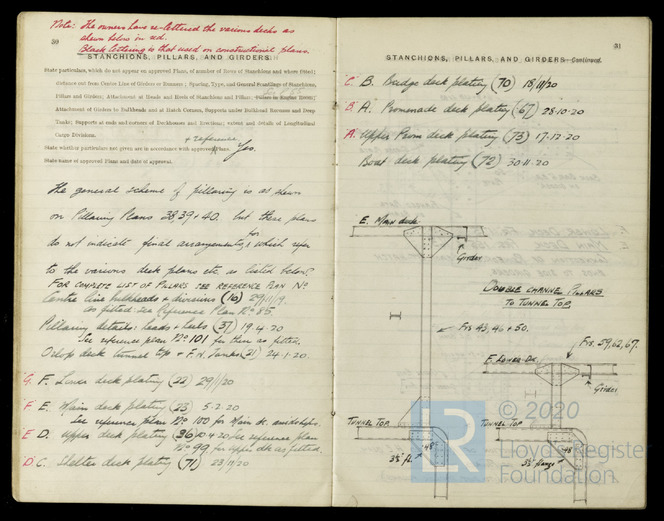 Note: The owners have re-lettered the various decks as
shewn below in red.
Black lettering is that used on constructional plans.
30
STANCHIONS, PILLARS, AND GIRDERS.
State particulars, which do not appear on approved Plans, of number of Rows of Stanchions and where fitted;
distance out from Centre Line of Girders or Runners; Spacing, Type, and General Scantlings of Stanchions,
Pillars and Girders; Attachment at Heads and Heels of Stanchions and Pillars;
Attachment of Girders to Bulkheads and at Hatch Corners, Supports under Bulkhead Recesses and Deep
Tanks; Supports at ends and corners of Deckhouses and Erections; extent and details of Longitudinal
Cargo Divisions.
+ reference
State whether particulars not given are in accordance with approved Plans. Yes.
State name of approved Plans and date of approval.
The general scheme of pillaring is as shewn
on Pillaring Plans 38, 39 + 40. but these plans
do not indicate final arrangements, for which refer
to the various deck plans etc. as listed below:
FOR COMPLETE LIST OF PILLARS SEE REFERENCE PLAN No
Centre line bulkheads & divisions (16) 29/11/19.
as fitted see Reference Plan No 85.
Pillaring details: heads & heels (37) 19.4.20
See reference plan No 101 for them as fitted.
Orlop deck tunnel top & F.W. Tanks (21) 24.1.20.
G. F. Lower deck plating (22) 29/1/20
F E. Main deck plating (23) 5.2.20
See reference plan No 100 for Main dk. amidships.
E D. Upper deck plating (36) 10.4.20 See reference plan
No 99 for upper dk as fitted.
D C. Shelter deck plating (71) 23/11/20
31
STANCHIONS, PILLARS, AND GIRDERS—Continued.
C B. Bridge deck plating (70) 18/11/20
B A. Promenade deck plating (67) 28.10.20
A Upper Prom deck plating (73) 17.12.20
Boat deck plating (72) 30.11.20
E. Main deck
Girder
DOUBLE CHANNEL PILLARS
TO TUNNEL TOP.
Frs 43, 46 + 50.
Frs. 59, 62, 67.
F. LOWER DK.
Girder
TUNNEL TOP
TUNNEL TOP
.48
.48
3½" fl.
3½" flange
LR © 2020
Lloyd's Register
Foundation